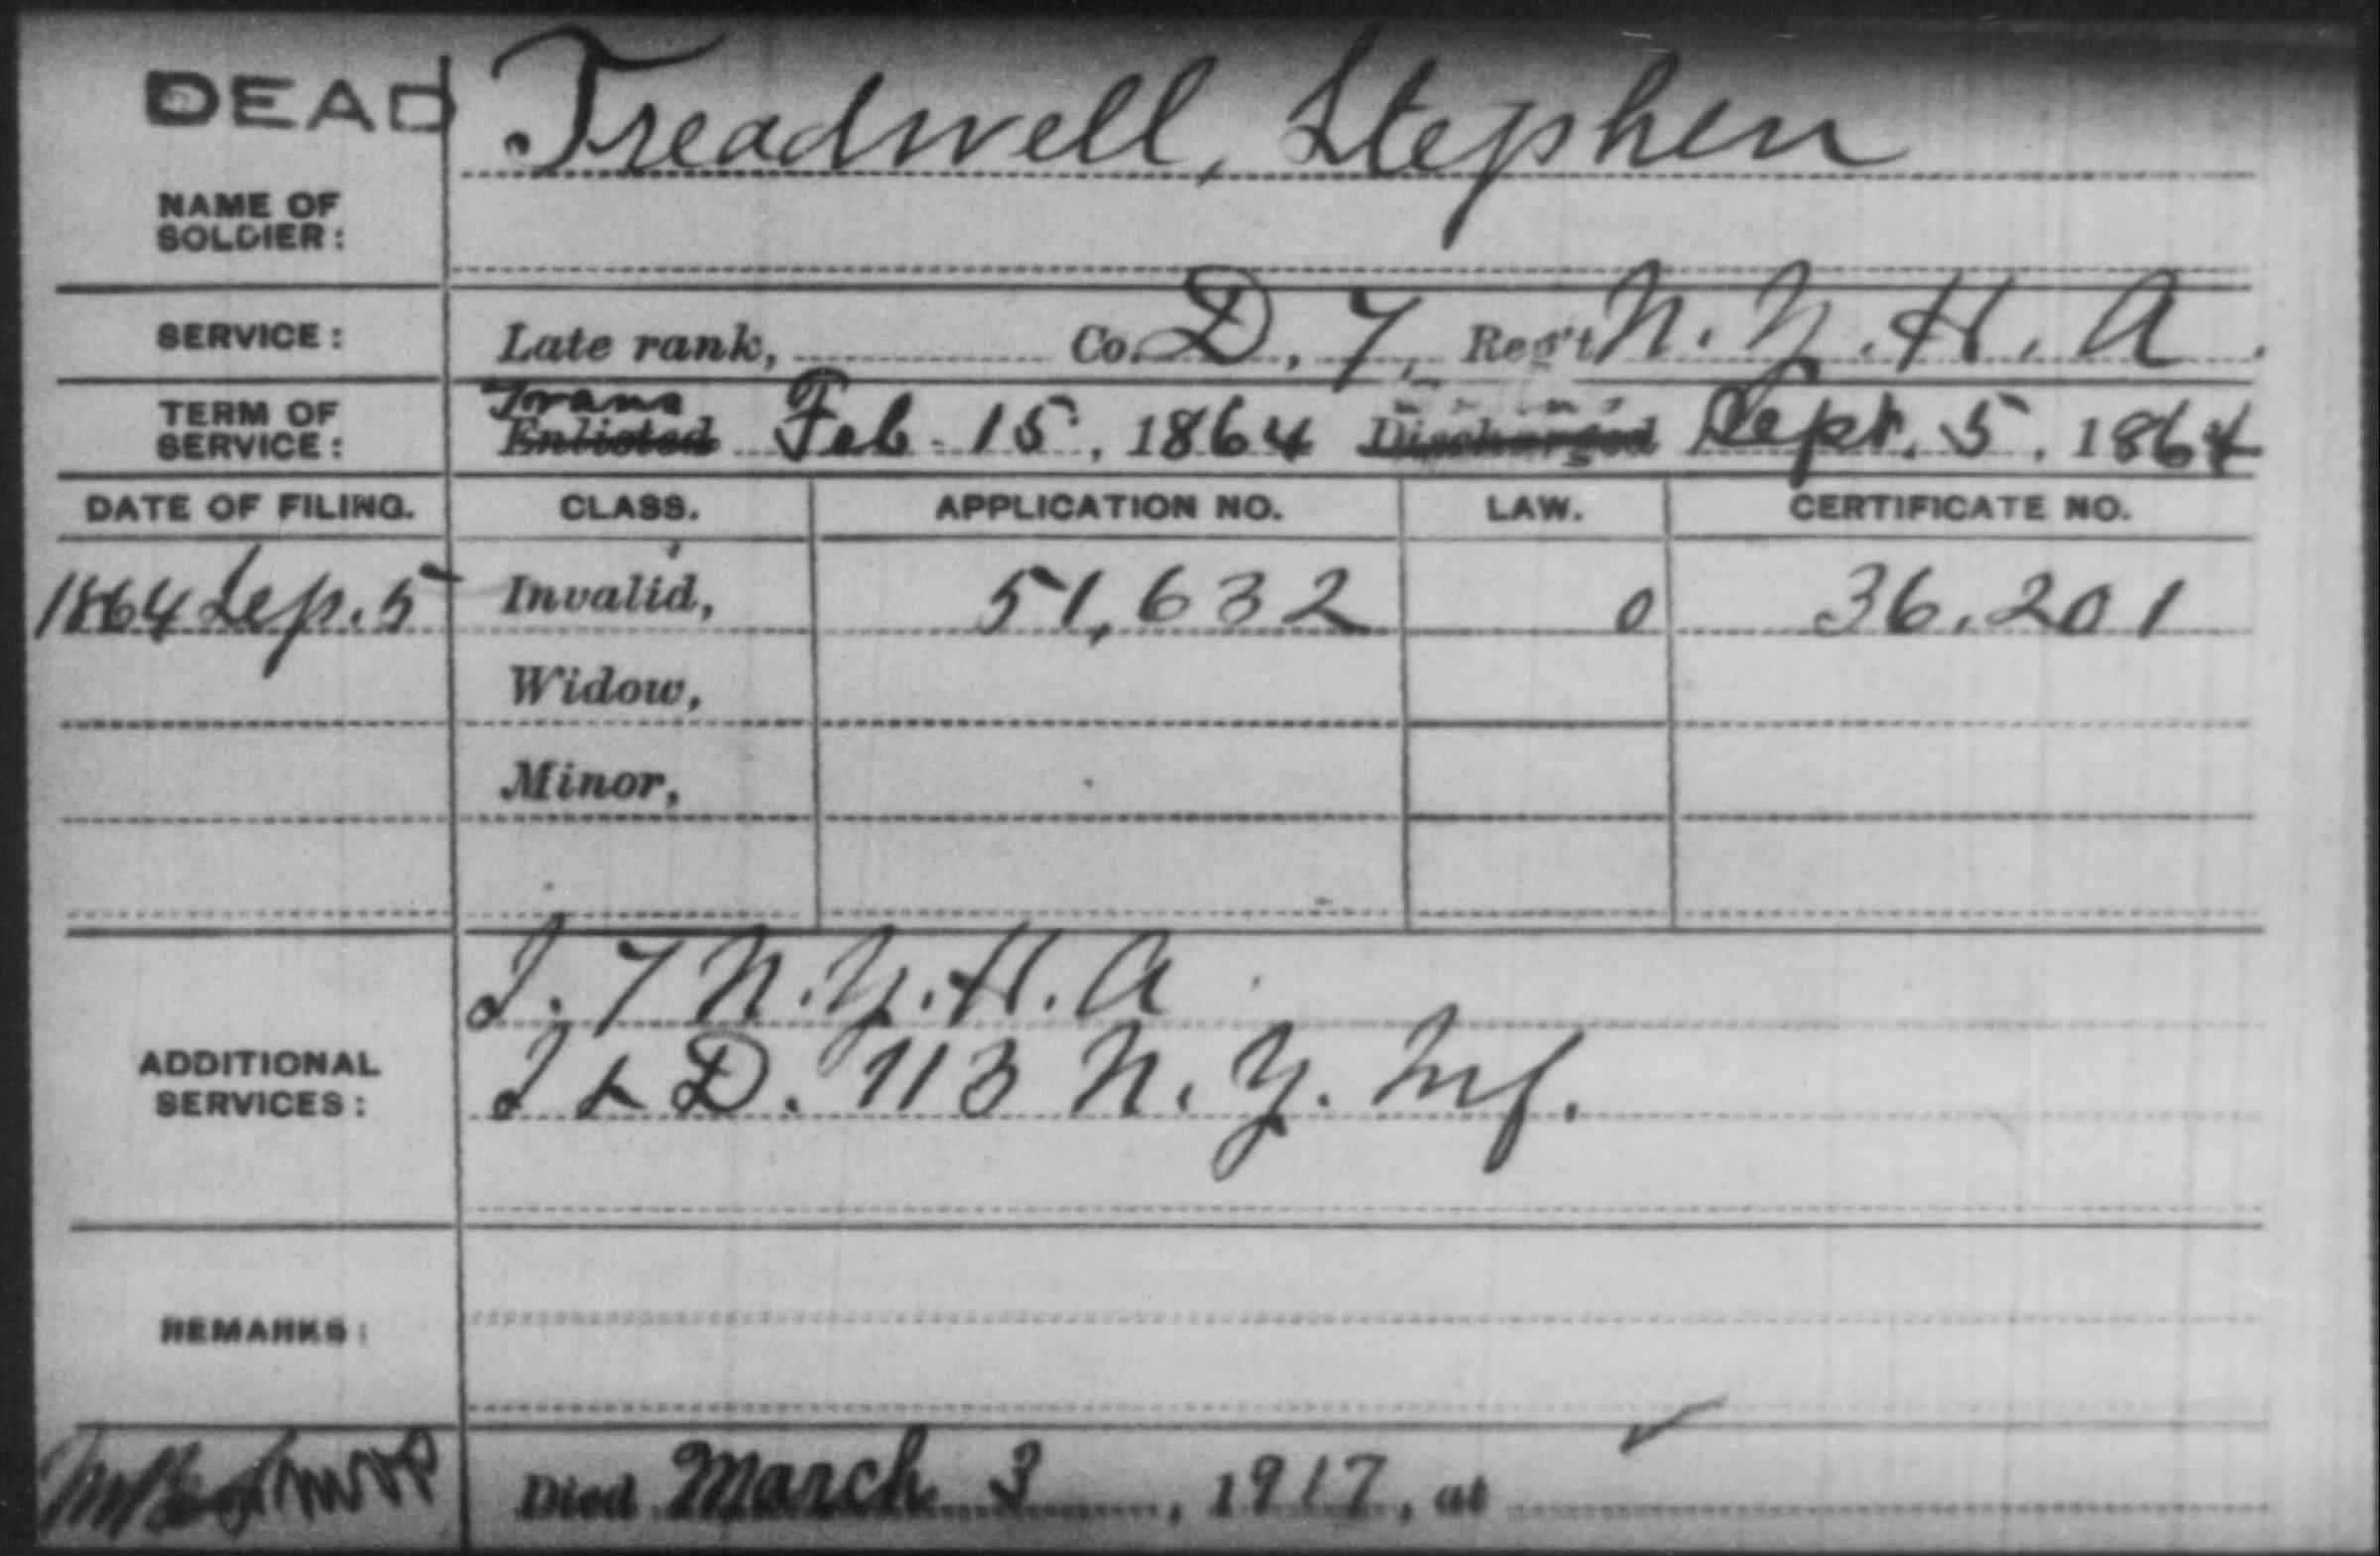 DEAD Treadwell, Stephen
NAME OF
SOLDIER:
SERVICE: Late rank, Co. D, 7, Reg't N. Y. H. A.
Trans
TERM OF
SERVICE: Enlisted Feb. 15, 1864 Discharged Sept. 5, 1864
DATE OF FILING. CLASS. APPLICATION NO. LAW. CERTIFICATE NO.
1864 Sep. 5 Invalid, 51,632 0 36.201
Widow,
Minor,
I. 7 N.Y.H.A
ADDITIONAL
SERVICES: I & D. 113 N. Y. Inf.
REMARKS:
Died March 3, 1917, at